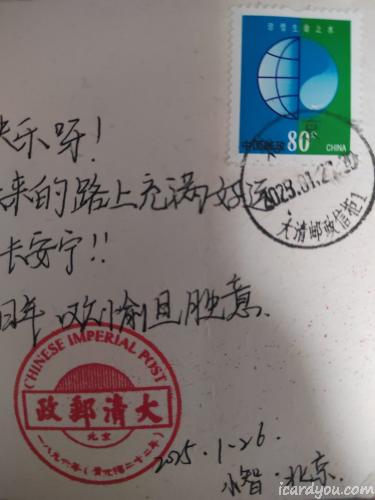 珍惜生命之水
中国邮政 80分 CHINA
2025.01.27.10
大清邮政信柜1
快乐呀!
来的路上充满好运
长安宁!!
年 欢愉且胜意.
CHINESE IMPERIAL POST
政郵清大
北京
一八九六年(光緒二十二年)
2025.1-26.
小智·北京.
icardyou.com